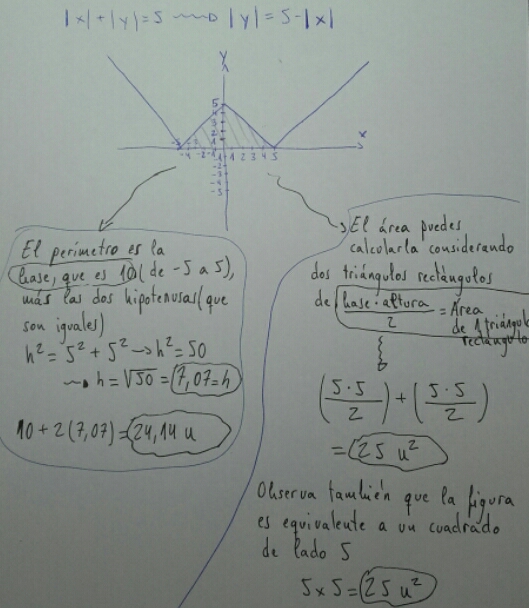 |x|+|y|=5 ⟿ |y|=5-|x|
y
5
4
3
2
1
x
-5 -4 -3 -2 -1 1 2 3 4 5
-1
-2
-3
-4
-5
El perímetro es la
base, que es 10 (de -5 a 5),
más las dos hipotenusas (que
son iguales)
h² = 5² + 5² → h² = 50
⟿ h = √50 = 7,07 = h
10 + 2(7,07) = 24,14 u
El área puedes
calcularla considerando
dos triángulos rectángulos
de base · altura / 2 = Área
de 1 triángulo
rectángulo
(5·5 / 2) + (5·5 / 2)
= 25 u²
Observa también que la figura
es equivalente a un cuadrado
de lado 5
5 x 5 = 25 u²